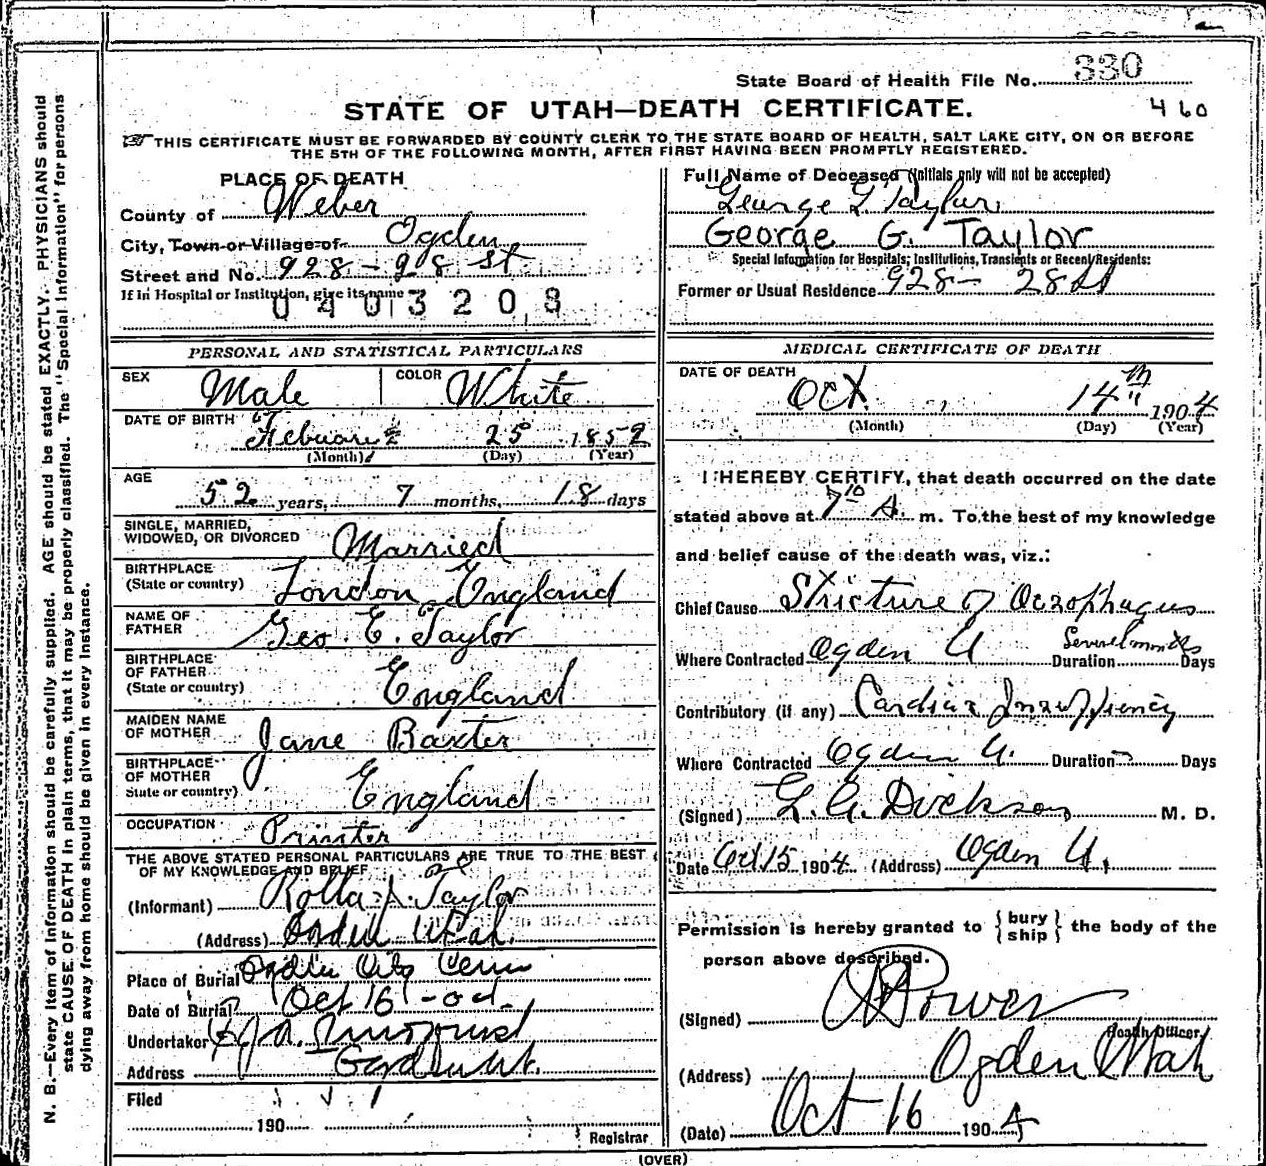 State Board of Health File No. 330
STATE OF UTAH—DEATH CERTIFICATE.
460
THIS CERTIFICATE MUST BE FORWARDED BY COUNTY CLERK TO THE STATE BOARD OF HEALTH, SALT LAKE CITY, ON OR BEFORE
THE 5TH OF THE FOLLOWING MONTH, AFTER FIRST HAVING BEEN PROMPTLY REGISTERED.
PLACE OF DEATH
County of Weber
City, Town or Village of Ogden
Street and No. 928 - 28 St
If in Hospital or Institution, give its name
0403208
PERSONAL AND STATISTICAL PARTICULARS
SEX Male COLOR White
DATE OF BIRTH Febuary 25 1852
(Month) (Day) (Year)
AGE
52 years, 7 months, 18 days
SINGLE, MARRIED,
WIDOWED, OR DIVORCED Married
BIRTHPLACE
(State or country) London England
NAME OF
FATHER Geo. E. Taylor
BIRTHPLACE
OF FATHER
(State or country) England
MAIDEN NAME
OF MOTHER Jane Baxter
BIRTHPLACE
OF MOTHER
State or country) England
OCCUPATION Printer
THE ABOVE STATED PERSONAL PARTICULARS ARE TRUE TO THE BEST
OF MY KNOWLEDGE AND BELIEF
(Informant) Rolla Taylor
(Address) Ogden Utah.
Place of Burial Ogden City Cem
Date of Burial Oct 16
Undertaker
Address
Filed
190
Registrar
Full Name of Deceased (Initials only will not be accepted)
George G Taylor
George G. Taylor
Special Information for Hospitals, Institutions, Transients or Recent Residents:
Former or Usual Residence 928 - 28 St
MEDICAL CERTIFICATE OF DEATH
DATE OF DEATH
Oct. 14th 1904
(Month) (Day) (Year)
I HEREBY CERTIFY, that death occurred on the date
stated above at 7 10 A. m. To the best of my knowledge
and belief cause of the death was, viz.:
Chief Cause Stricture of Oesophagus
Where Contracted Ogden U Duration Several months Days
Contributory (if any) Cardiac Insufficiency
Where Contracted Ogden U. Duration Days
(Signed) Dickson M. D.
Date Oct 15 1904 (Address) Ogden U.
Permission is hereby granted to {bury
ship} the body of the
person above described.
(Signed) Power
Health Officer
(Address) Ogden Utah
(Date) Oct 16 1904
(OVER)
N. B.—Every item of information should be carefully supplied. AGE should be stated EXACTLY. PHYSICIANS should
state CAUSE OF DEATH in plain terms, that it may be properly classified. The "Special Information" for persons
dying away from home should be given in every instance.